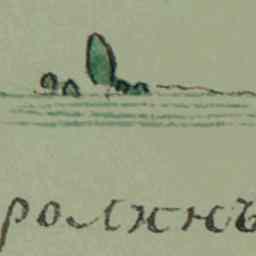 ролжнъ